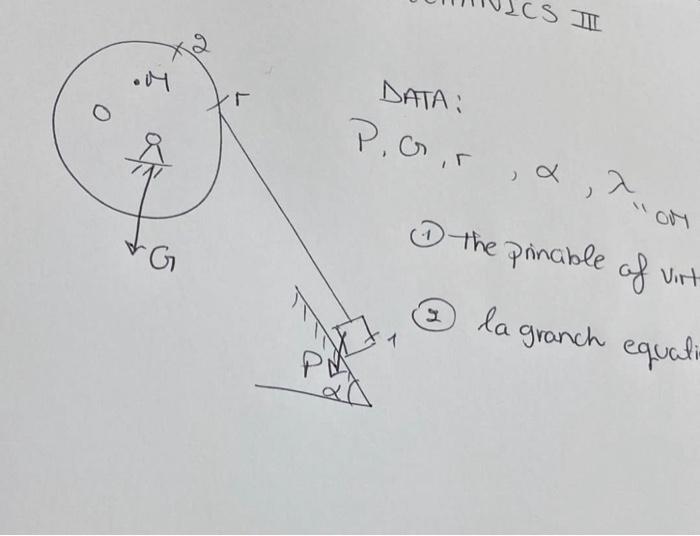 ECHANICS III
2
.M
r
O
G
DATA:
P, G, r, α, λ
"OM
① the pinciable of virt
② la granch equati
1
P
α